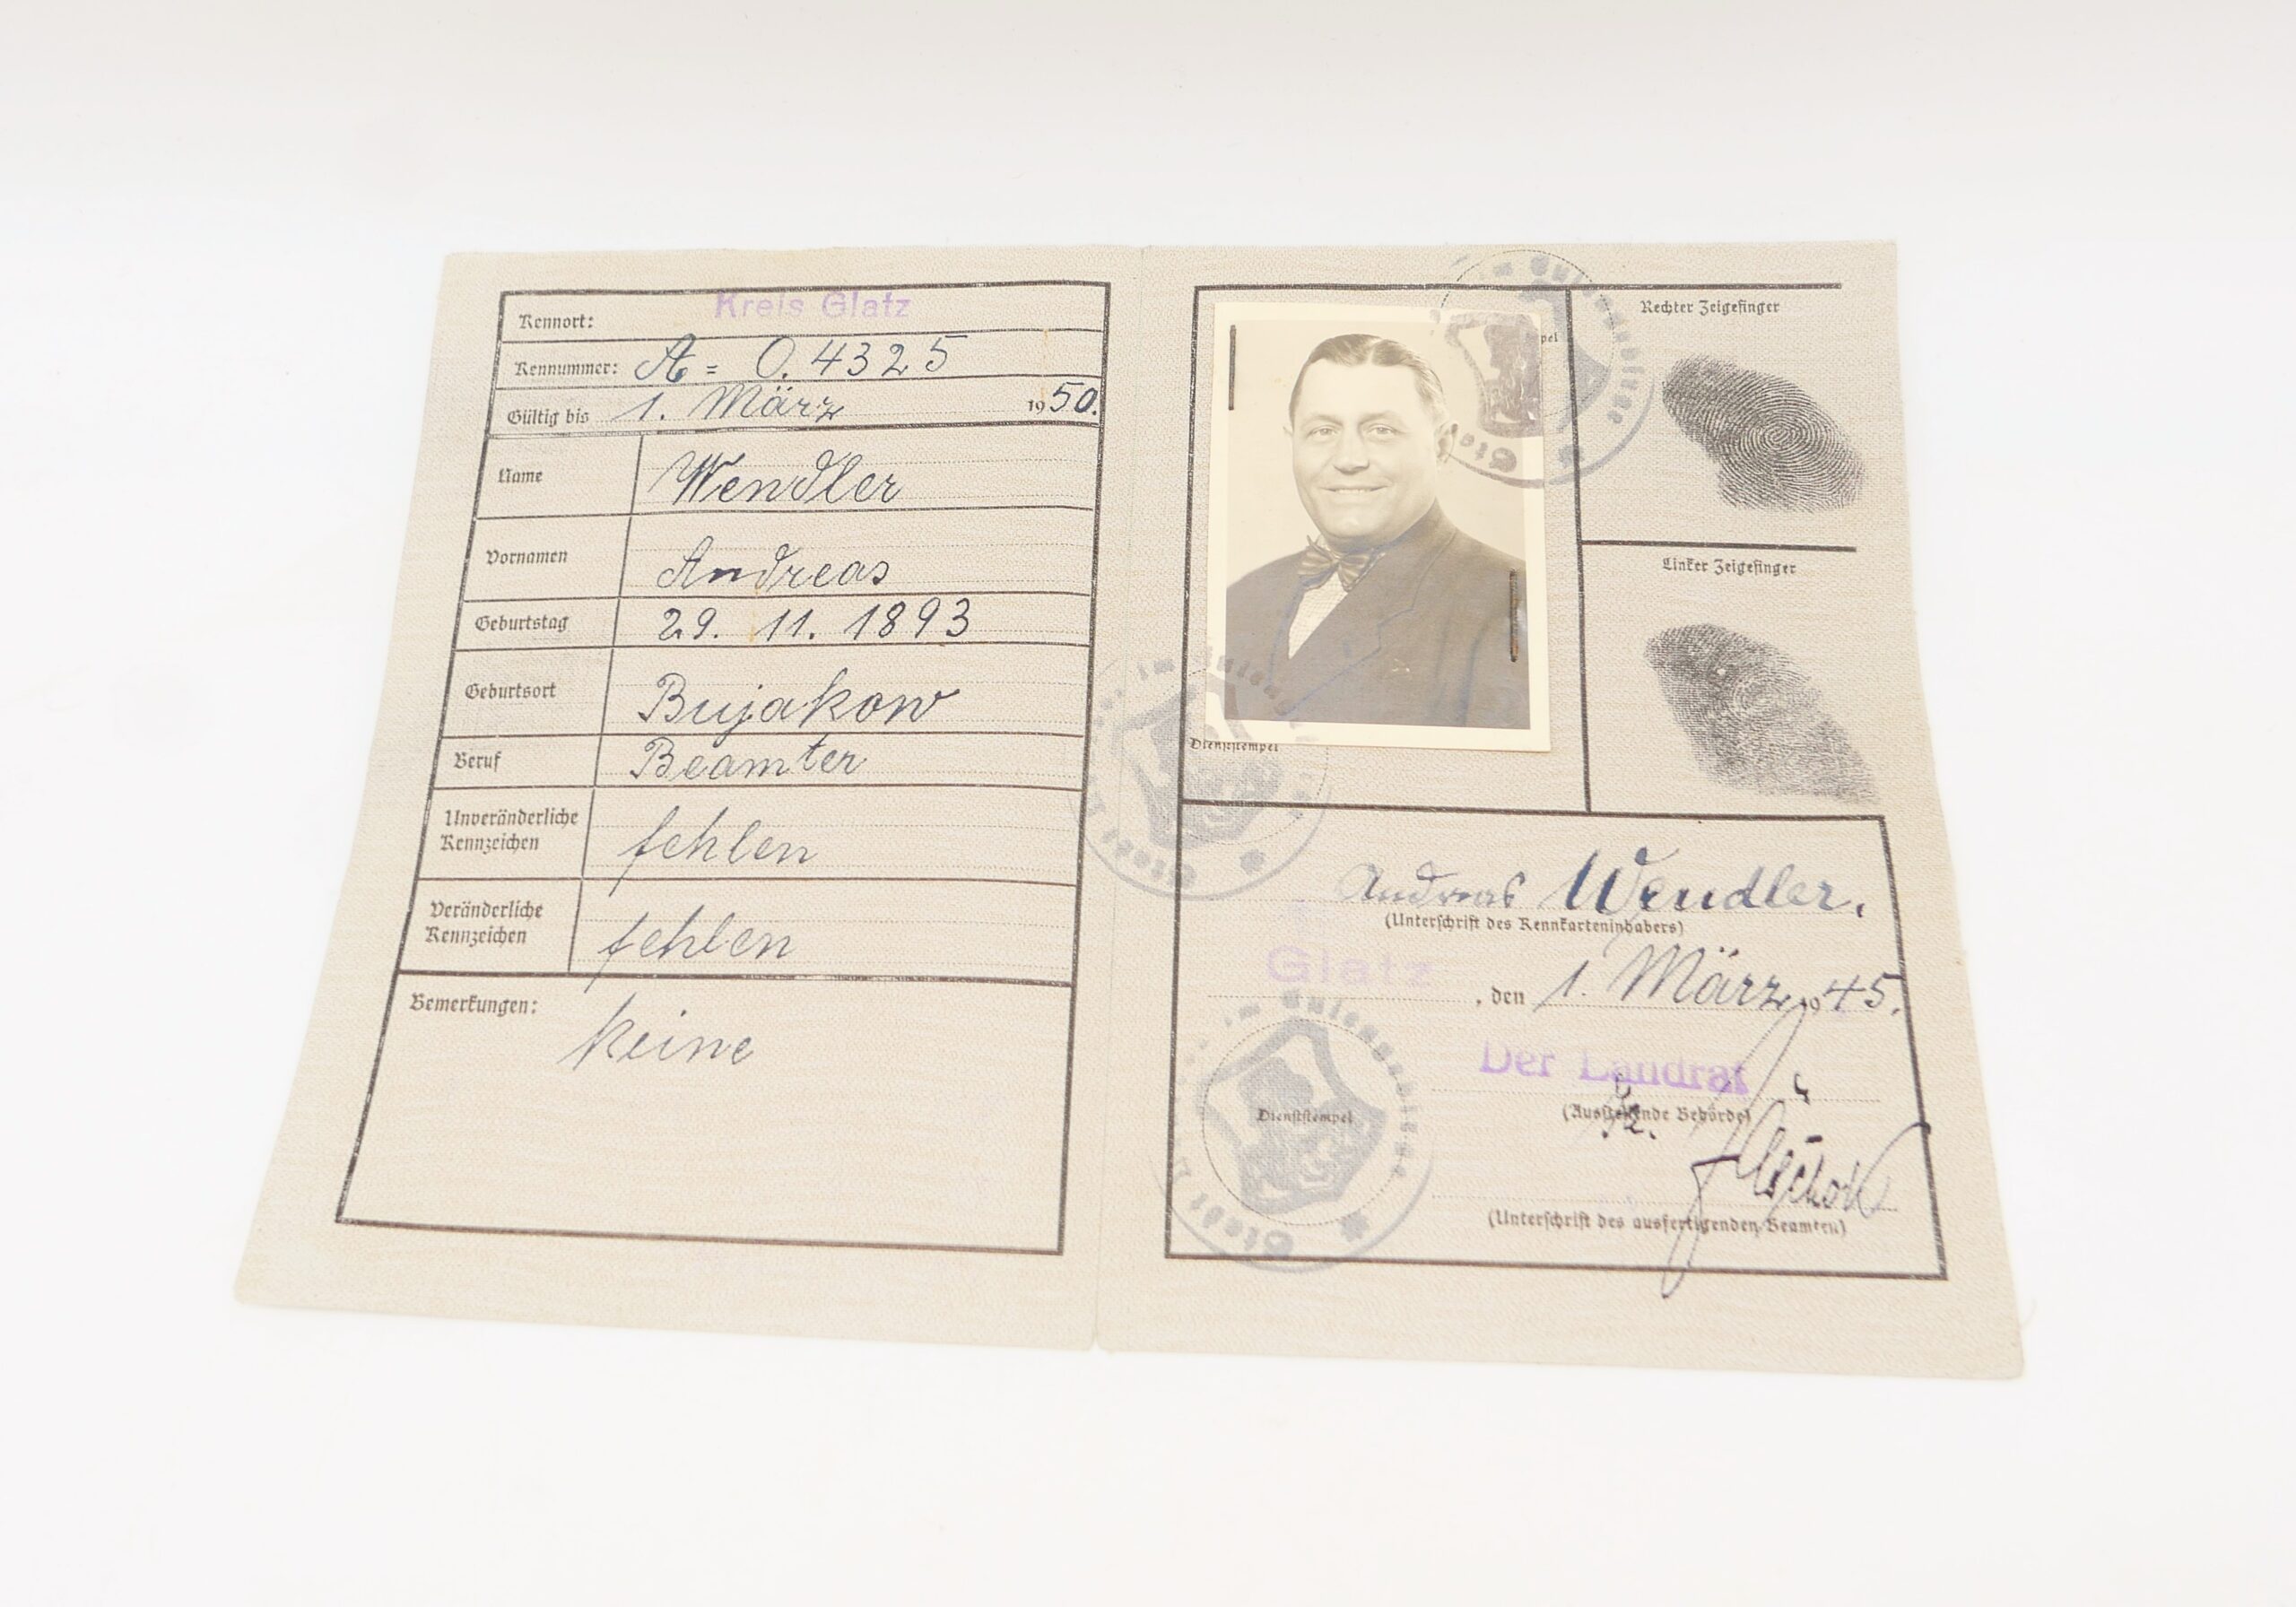 Kennort: Kreis Glatz
Kennummer: A = 0.4325
Gültig bis 1. März 1950.
Name Wendler
Vornamen Andreas
Geburtstag 29. 11. 1893
Geburtsort Bujakow
Beruf Beamter
Unveränderliche
Kennzeichen fehlen
Veränderliche
Kennzeichen fehlen
Bemerkungen: keine
Rechter Zeigefinger
Linker Zeigefinger
Dienststempel
Andreas Wendler.
(Unterschrift des Kennkarteninhabers)
Glatz, den 1. März 1945.
Der Landrat
(Ausstellende Behörde)
Dienststempel
(Unterschrift des ausfertigenden Beamten)